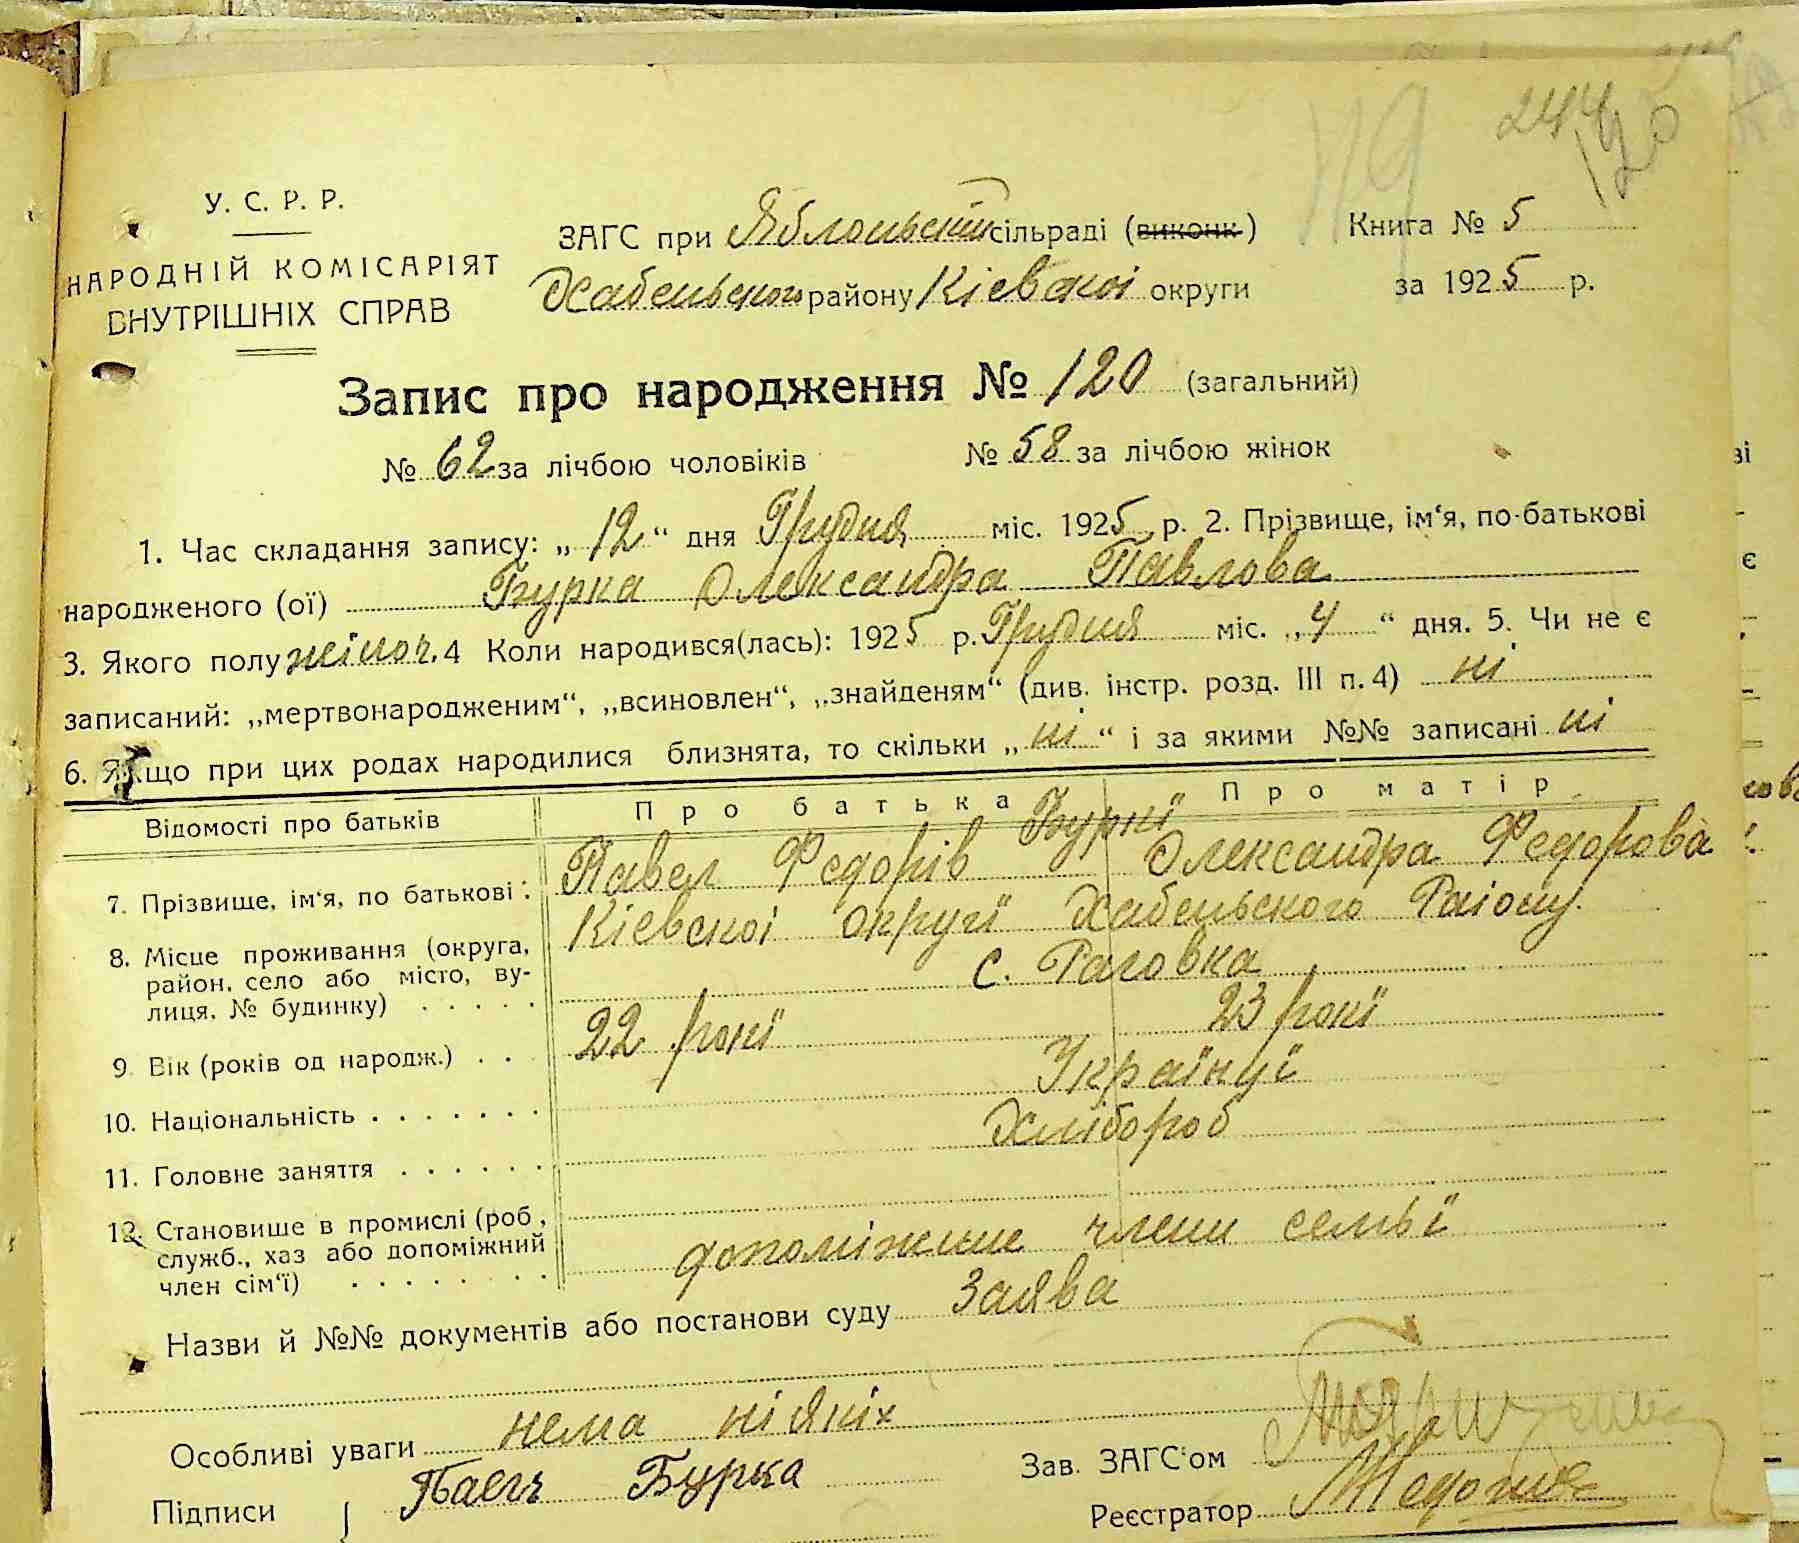 244
119 120
У. С. Р. Р.
НАРОДНІЙ КОМІСАРІЯТ
ВНУТРІШНІХ СПРАВ
ЗАГС при Яблоньскій сільраді (виконк.) Книга № 5
Хабеньского району Кієвскоі округи за 1925 р.
Запис про народження № 120 (загальний)
№ 62 за лічбою чоловіків № 58 за лічбою жінок
1. Час складання запису: „12“ дня Грудня міс. 1925 р. 2. Прізвище, ім‘я, по-батькові
народженого (ої) Бурка Олександра Павлова
3. Якого полу жіноч. 4 Коли народився(лась): 1925 р. Грудня міс. „4“ дня. 5. Чи не є
записаний: „мертвонародженим“, „всиновлен“, „знайденям“ (див. інстр. розд. III п. 4) ні
6. Якщо при цих родах народилися близнята, то скільки „ні“ і за якими №№ записані ні
Відомості про батьків Про батька Про матір
Буркї
7. Прізвище, ім‘я, по батькові: Павел Федорів Олександра Федорова
8. Місце проживання (округа, Кіевскоі округї Хабеньского Раіону.
район, село або місто, ву- с. Раговка
лиця, № будинку)
9. Вік (років од народж.) 22 рокї 23 рокї
10. Національність Українцї
11. Головне заняття Хлібороб
12. Становише в промислі (роб,
служб., хаз або допоміжний допоміжние члени семьї
член сім‘ї)
Назви й №№ документів або постанови суду Заява
Особливі уваги нема ніякіх
Зав. ЗАГС‘ом
Підписи Бурка
Реєстратор